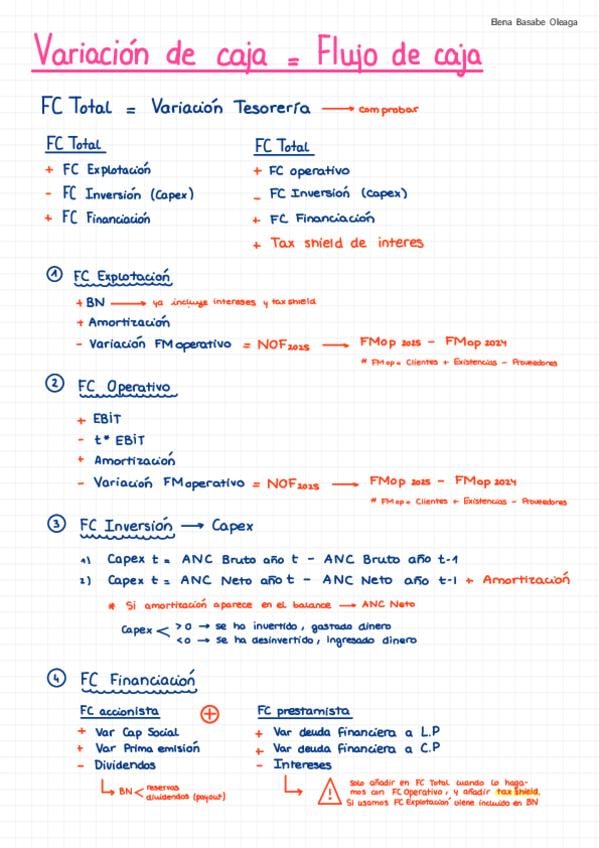 Elena Basabe Oleaga
Variación de caja = Flujo de caja
FC Total = Variación Tesorería → comprobar
FC Total
+ FC Explotación
- FC Inversión (Capex)
+ FC Financiación
FC Total
+ FC operativo
- FC Inversión (Capex)
+ FC Financiación
+ Tax shield de interes
① FC Explotación
+ BN → ya incluye intereses y tax shield
+ Amortización
- Variación FM operativo = NOF2025 → FMop 2025 - FMop 2024
* FMop = Clientes + Existencias - Proveedores
② FC Operativo
+ EBIT
- t* EBIT
+ Amortización
- Variación FM operativo = NOF2025 → FMop 2025 - FMop 2024
* FMop = Clientes + Existencias - Proveedores
③ FC Inversión → Capex
1) Capex t = ANC Bruto año t - ANC Bruto año t-1
2) Capex t = ANC Neto año t - ANC Neto año t-1 + Amortización
* Si amortización aparece en el balance → ANC Neto
Capex < >0 → se ha invertido, gastado dinero
<0 → se ha desinvertido, ingresado dinero
④ FC Financiación
FC accionista
+ Var Cap Social
+ Var Prima emisión
- Dividendos
↳ BN < reservas
dividendos (payout)
⊕
FC prestamista
+ Var deuda financiera a L.P
+ Var deuda financiera a C.P
- Intereses
↳ ⚠ Solo añadir en FC Total cuando lo haga-
mos con FC Operativo, y añadir tax shield.
Si usamos FC Explotación viene incluido en BN